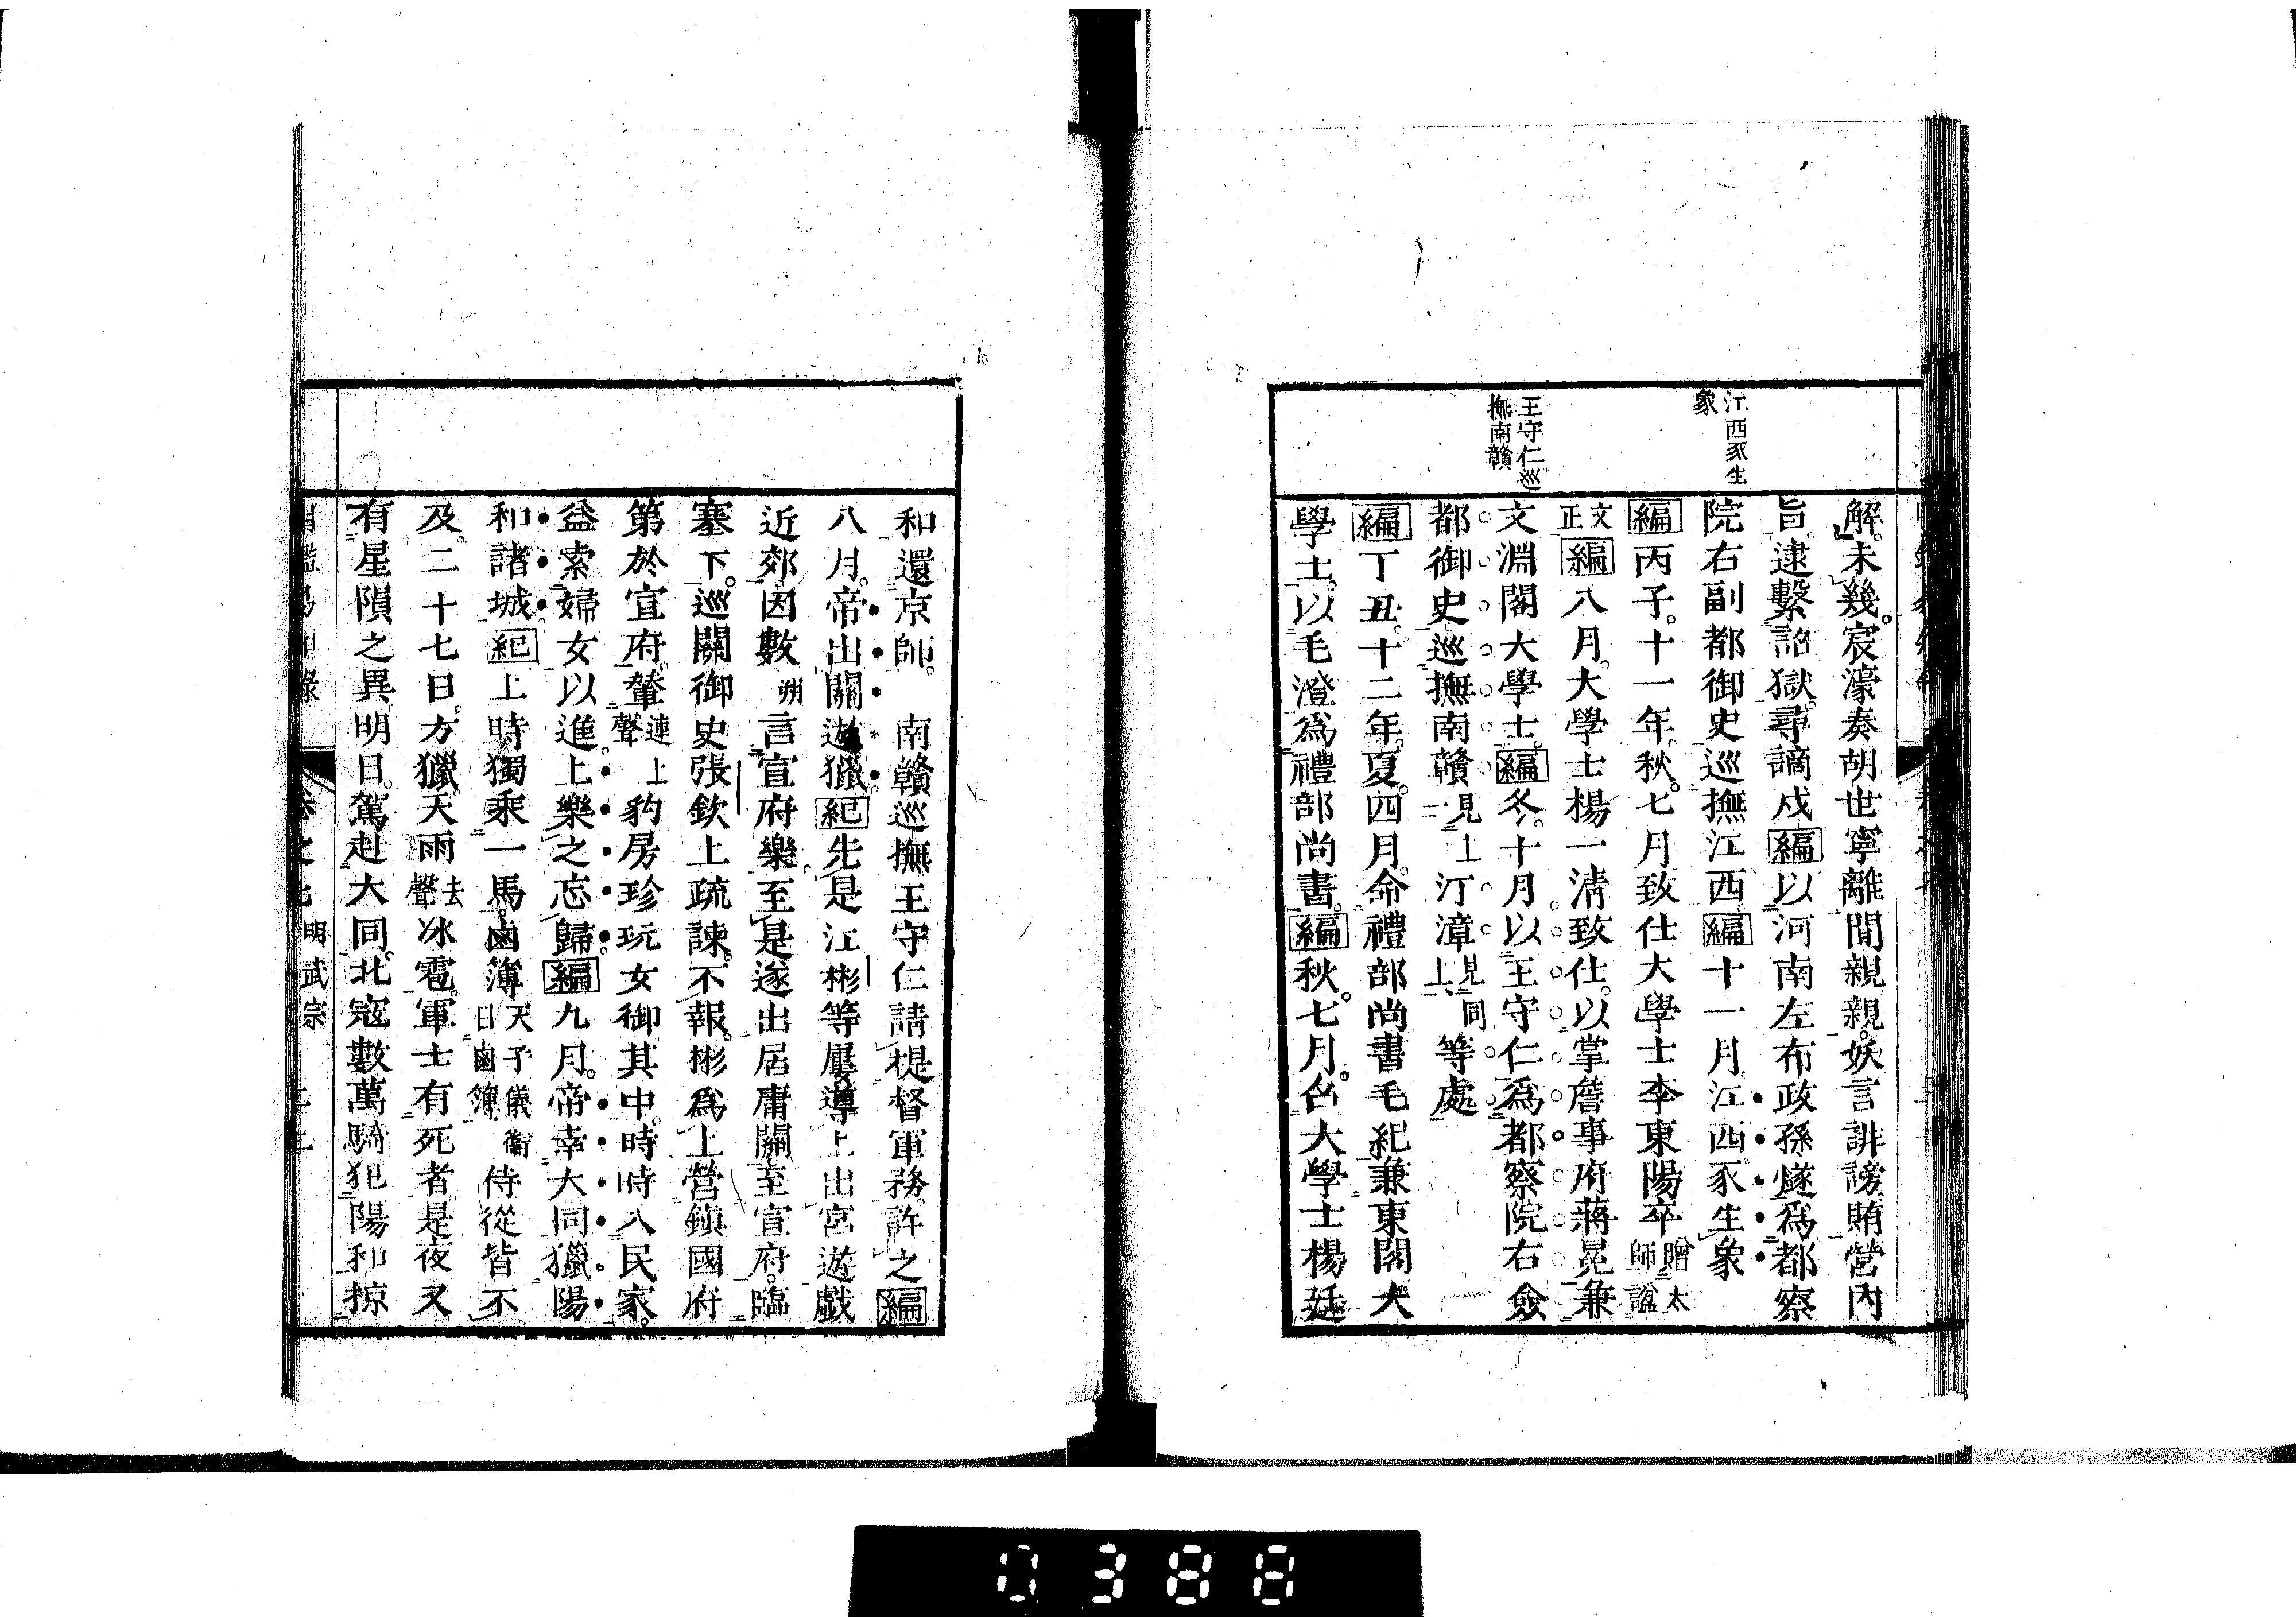 江西豕生
象
王守仁巡
撫南贛
解未幾宸濠奏胡世寧離間親親妖言誹謗賄營內
旨逮繫詔獄尋謫戍編以河南左布政孫燧爲都察
院右副都御史巡撫江西編十一月江西豕生象
編丙子十一年秋七月致仕大學士李東陽卒贈太師謚
文正編八月大學士楊一淸致仕以掌詹事府蔣冕兼
文淵閣大學士編冬十月以王守仁爲都察院右僉
都御史巡撫南贛見上汀漳見上同等處
編丁丑十二年夏四月命禮部尚書毛紀兼東閣大
學士以毛澄爲禮部尚書編秋七月召大學士楊廷
和還京師 南贛巡撫王守仁請提督軍務許之編
八月帝出關遊獵紀先是江彬等屢導上出宮遊戲
近郊因數朔言宣府樂至是遂出居庸關至宣府臨
塞下巡關御史張欽上疏諫不報彬爲上營鎮國府
第於宣府輦連上聲豹房珍玩女御其中時時入民家
益索婦女以進上樂之忘歸編九月帝幸大同獵陽
和諸城紀上時獨乘一馬鹵簿天子儀衞曰鹵簿侍從皆不
及二十七日方獵天雨去聲冰雹軍士有死者是夜又
有星隕之異明日駕赴大同北寇數萬騎犯陽和掠
明武宗
0388